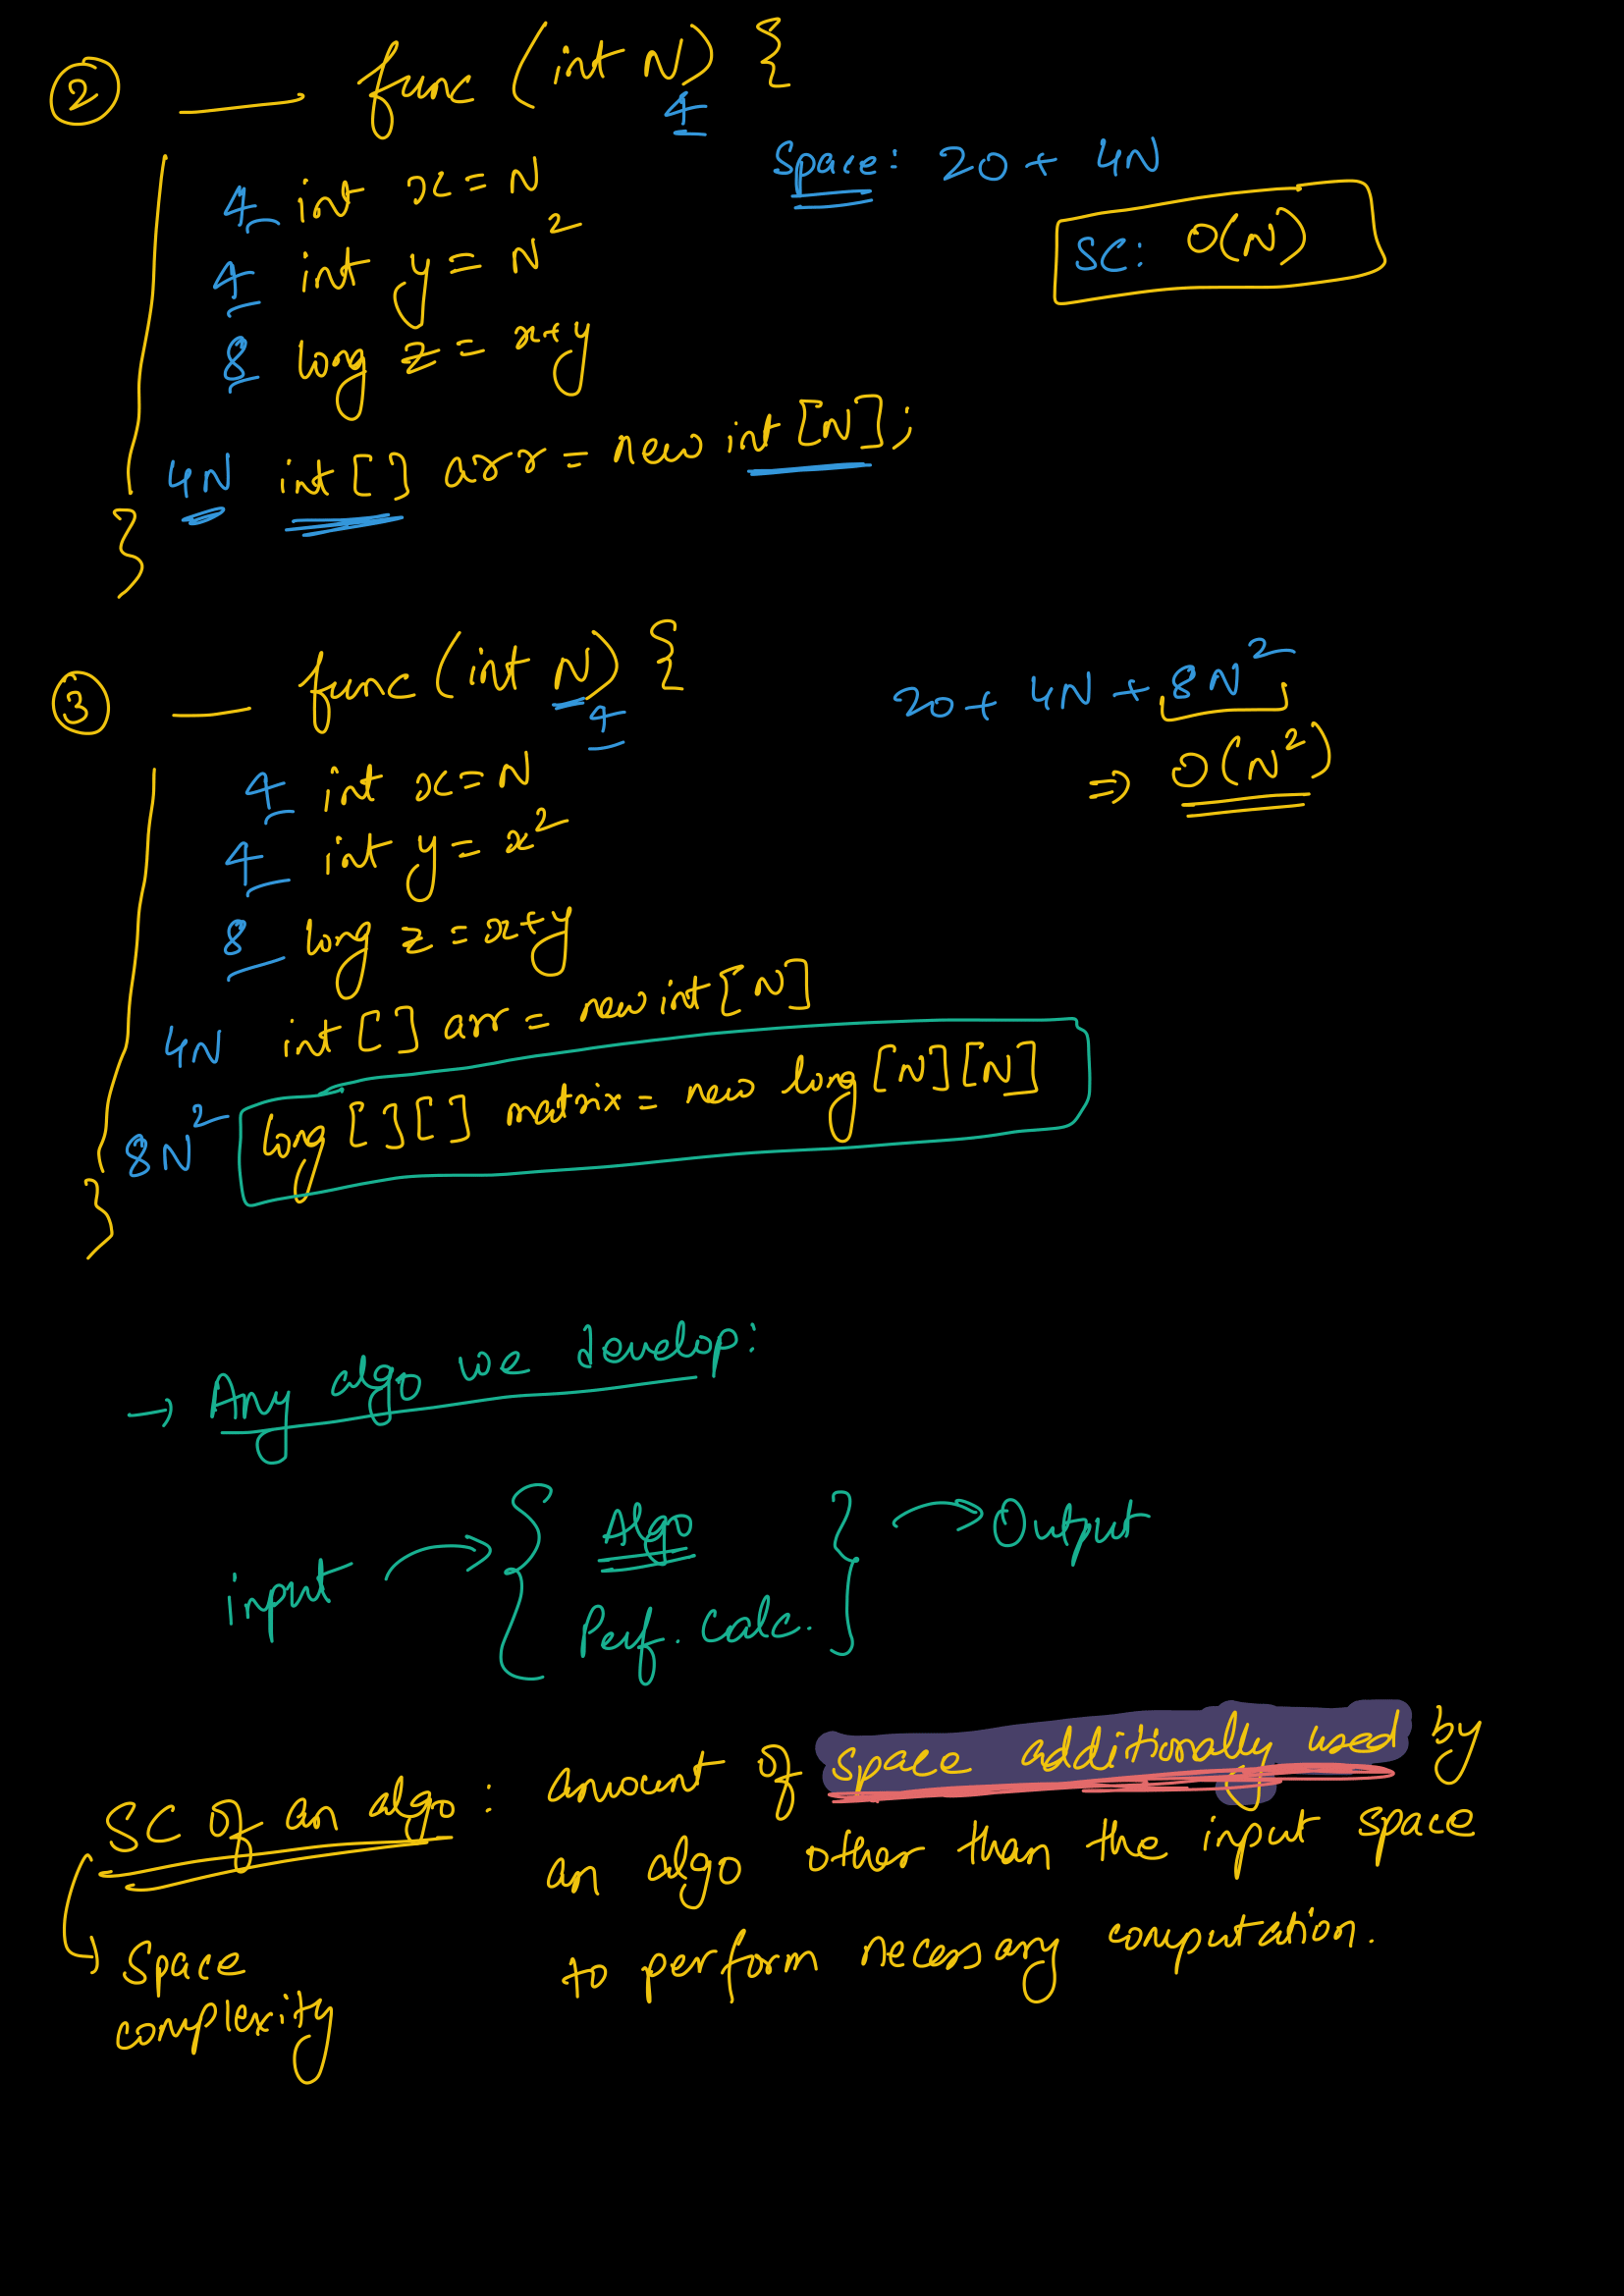 ② ___ func (int N) {
4
4 int x = N
Space: 20 + 4N
4 int y = N²
SC: O(N)
8 long z = x+y
4N int [ ] arr = new int [N];
}
③ ___ func (int N) {
4
20 + 4N + 8N²
4 int x = N
⇒ O(N²)
4 int y = x²
8 long z = x+y
4N int [ ] arr = new int [N]
8N² long [ ][ ] matrix = new long [N][N]
}
→ Any algo we develop:
input → { Algo } → Output
Perf. Calc.
SC of an algo : amount of space additionally used by
an algo other than the input space
to perform necessary computation.
↳ Space
complexity